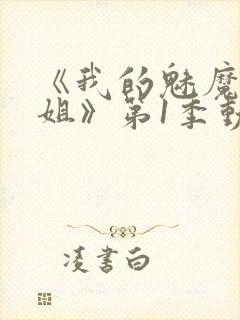 《我的魅魔
姐》第1季動
凌書白